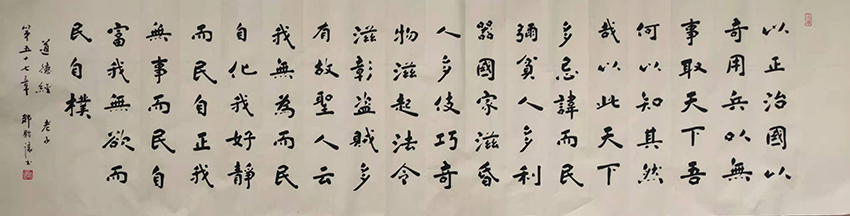 以正治國以
奇用兵以無
事取天下吾
何以知其然
哉以此天下
多忌諱而民
彌貧人多利
器國家滋昏
人多伎巧奇
物滋起法令
滋彰盗賊多
有故聖人云
我無為而民
自化我好靜
而民自正我
無事而民自
富我無欲而
民自樸
道德經 老子
第五十七章 書